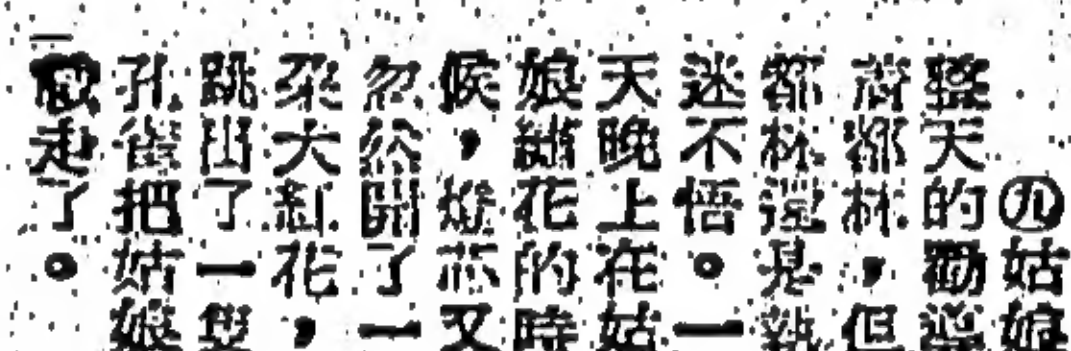 ㊈姑娘
整天的勸響
齊鄒林，但
鄒林還是執
迷不悟。一
天晚上在姑
娘繡花的時
候，燈芯又
忽然開了一
朵大紅花，
跳出了一隻
孔雀把姑娘
戲走了。